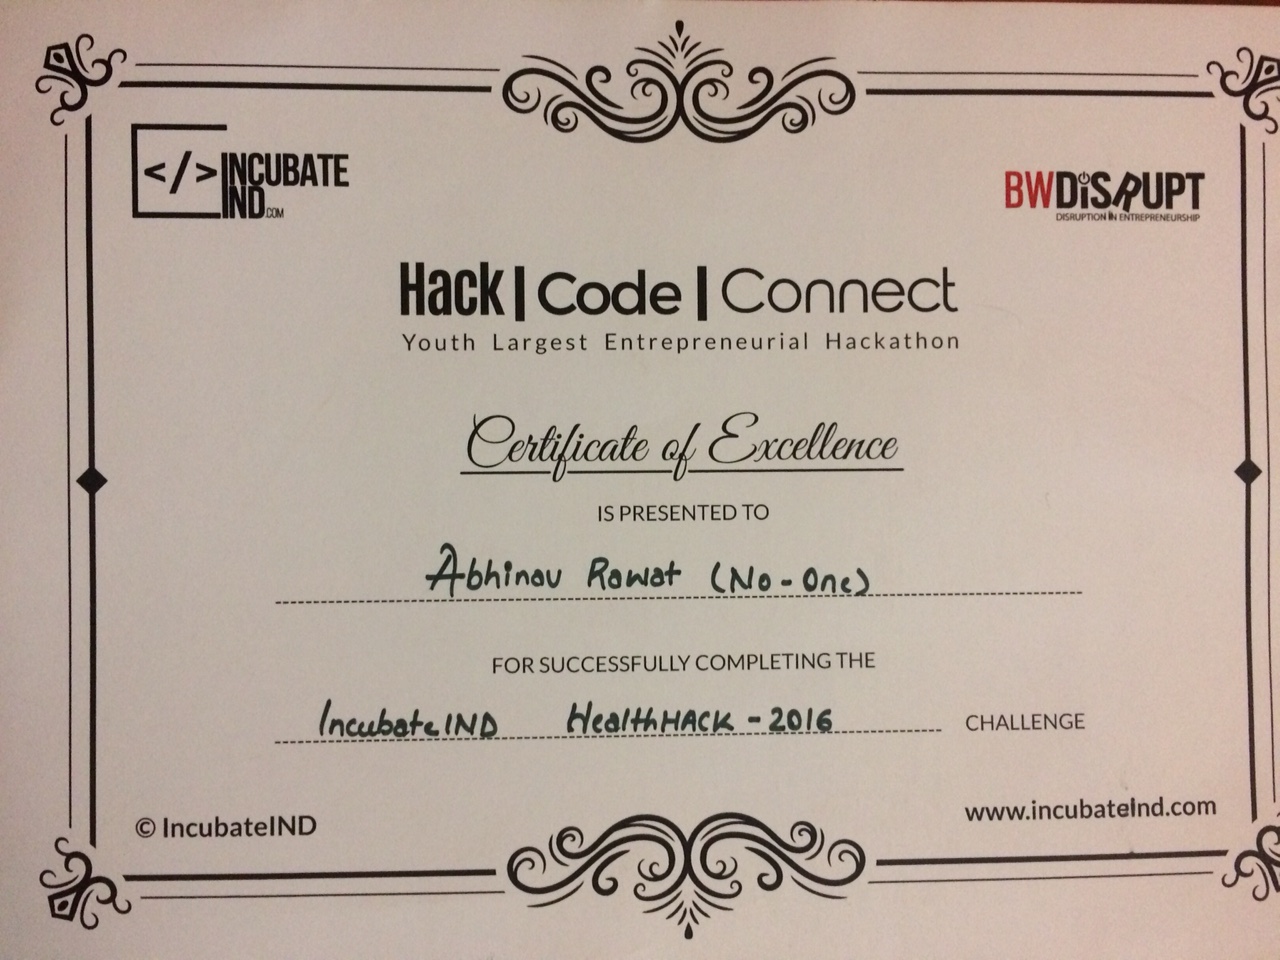 </> INCUBATE
IND.COM
BWDiSRUPT
DISRUPTION IN ENTREPRENEURSHIP
Hack|Code|Connect
Youth Largest Entrepreneurial Hackathon
Certificate of Excellence
IS PRESENTED TO
Abhinav Rawat (No-One)
FOR SUCCESSFULLY COMPLETING THE
IncubateIND HealthHACK - 2016 CHALLENGE
© IncubateIND
www.incubateInd.com